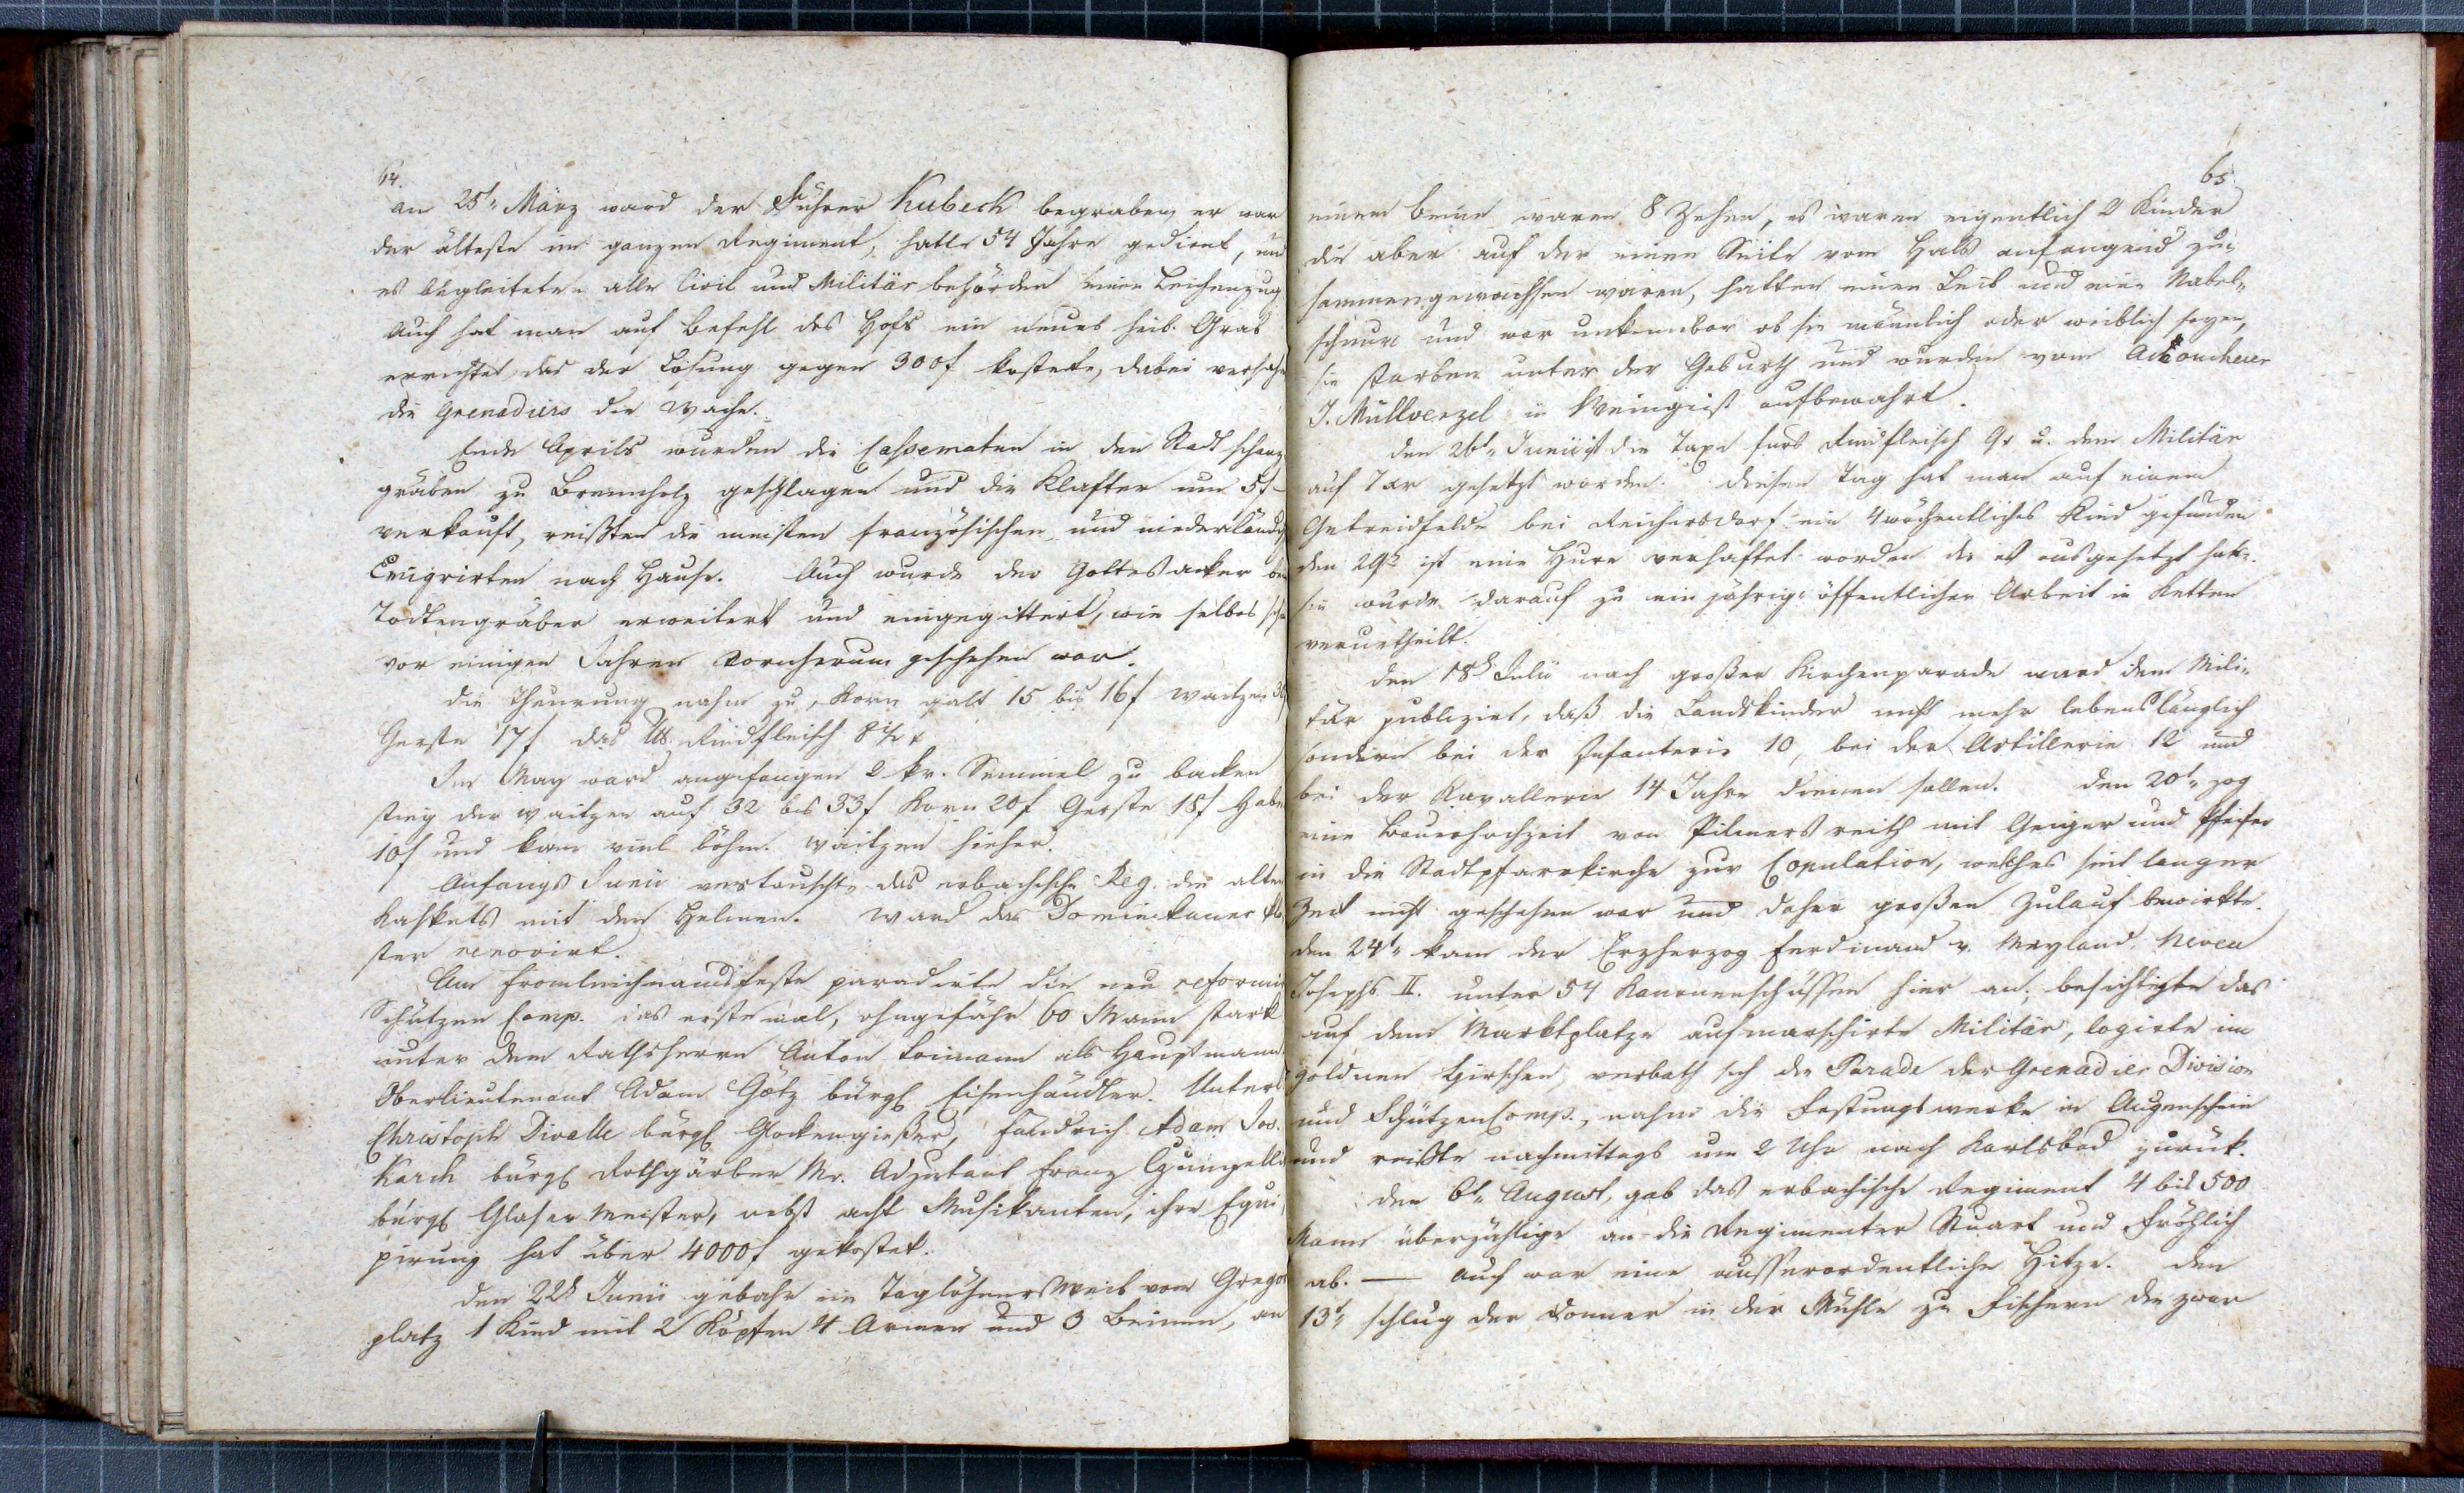 64.
am 25t. März ward der Führer Kubeck begraben, er war
der älteste im ganzen Regiment, hatte 54 Jahre gedient, und
es begleiteten alle Civil und Militär behörden seinen Leichenzug
Auch hat man auf Befehl des Hofs ein neues heil. Grab
errichtet, das der Losung gegen 300f kostete, dabei versahn
die Grenadiers die Wache.
Ende Aprils wurden die Cassematen in den Stadt schanz
gräben zu Brennholz geschlagen und die Klafter um 5f
verkauft, reißten die meisten französischen und niederländ
Emigrirten nach Hause. Auch wurde der Gottesacker beim
Todtengräber erweitert und eingegittert, wie selbes schon
vor einigen Jahren vornherum geschehen war.
die Theurung nahm zu, Korn galt 15 bis 16f Waitzen
Gerste 17f das lb. Rindfleisch 8½ x
Im May ward angefangen 2 kr. Semmel zu backen
stieg der Waitzen auf 32 bis 33f Korn 20f Gerste 18f Haber
10f und kam viel böhm. Waitzen hieher.
Anfangs Junii vertauschte das erbachische Reg. die alten
Kaskets mit den Helmen. Ward das Dominikaner Klo
ster renovirt.
Am Fronleichnamsfeste paradirte die neu reformir
Schützen Comp. das erstemal, ohngefähr 60 Mann stark
unter dem Rathsherrn Anton Loimann als Hauptmann
Oberlieutenant Adam Götz bürgl Eisenhändler. Unterl
Christoph Divalle bürgl Glockengießer, Fändrich Adam Jos.
Karch bürgl Rothgärber Mr. Adjutant Franz
bürgl Glaser Meister, nebst acht Musikanten, ihre Equi
pirung hat über 4000f gekostet.
den 22t Junii gebahr ein Taglöhners Weib vom Gregor
platz 1 Kind mit 2 Köpfen 4 Armen und 3 Beinen, an
65.
einem beine waren 8 Zehen, es waren eigentlich 2 Kinder
die aber auf der einen Seite vom Hals anfangend zu
sammengewachsen waren, hatten einen Leib und eine Nabel
schnur und war unkennbar ob sie männlich oder weiblich seyen,
sie starben unter der Geburth und wurden vom Accoucheur
J. Müllwenzel in Weingeist aufbewahrt.
den 26t. Junii ist die Taxe fürs Rindfleisch 9x u. dem Militär
auf 7 xr gesetzt worden. diesen Tag hat man auf einem
Getreidfelde bei Reichersdorf ein 4wöchentliches Kind gefunden
den 29t ist eine Hure verhaftet worden die es ausgesetzt hat.
sie wurde darauf zu ein jährig. öffentlicher Arbeit in Ketten
verurtheilt.
den 18t Julii nach großer Kirchenparade ward dem Mili
tär publizirt, daß die Landskinder nicht mehr lebenslänglich
sondern bei der Infanterie 10, bei der Artillerie 12 und
bei der Kavallerie 14 Jahre dienen sollen. den 20t. zog
eine Bauerhochzeit von Pilmersreith mit Geiger und Pfeifer
in die Stadtpfarrkirche zur Copulation, welches seit langer
Zeit nicht geschehen war und daher großen Zulauf bewirkte.
den 24t. kam der Erzherzog Ferdinand v. Meyland, Neveu
Josephs II. unter 54 Kanonenschüssen hier an, besichtigte das
auf dem Marktplatze aufmarschirte Militär, logirte im
goldnen Hirschen, verbath sich die Parade der Grenadier Division
und Schützen Comp., nahm die Festungswerke in Augenschein
und reißte nachmittags um 2 Uhr nach Karlsbad zurük.
den 6t. August, gab das erbachische Regiment 4 bis 500
Mann überzählige an die Regimenter Stuart und Fröhlich
ab. — Auch war eine ausserordentliche Hitze. den
13t. schlug der Donner in der Mühle zu Fischern die zwar